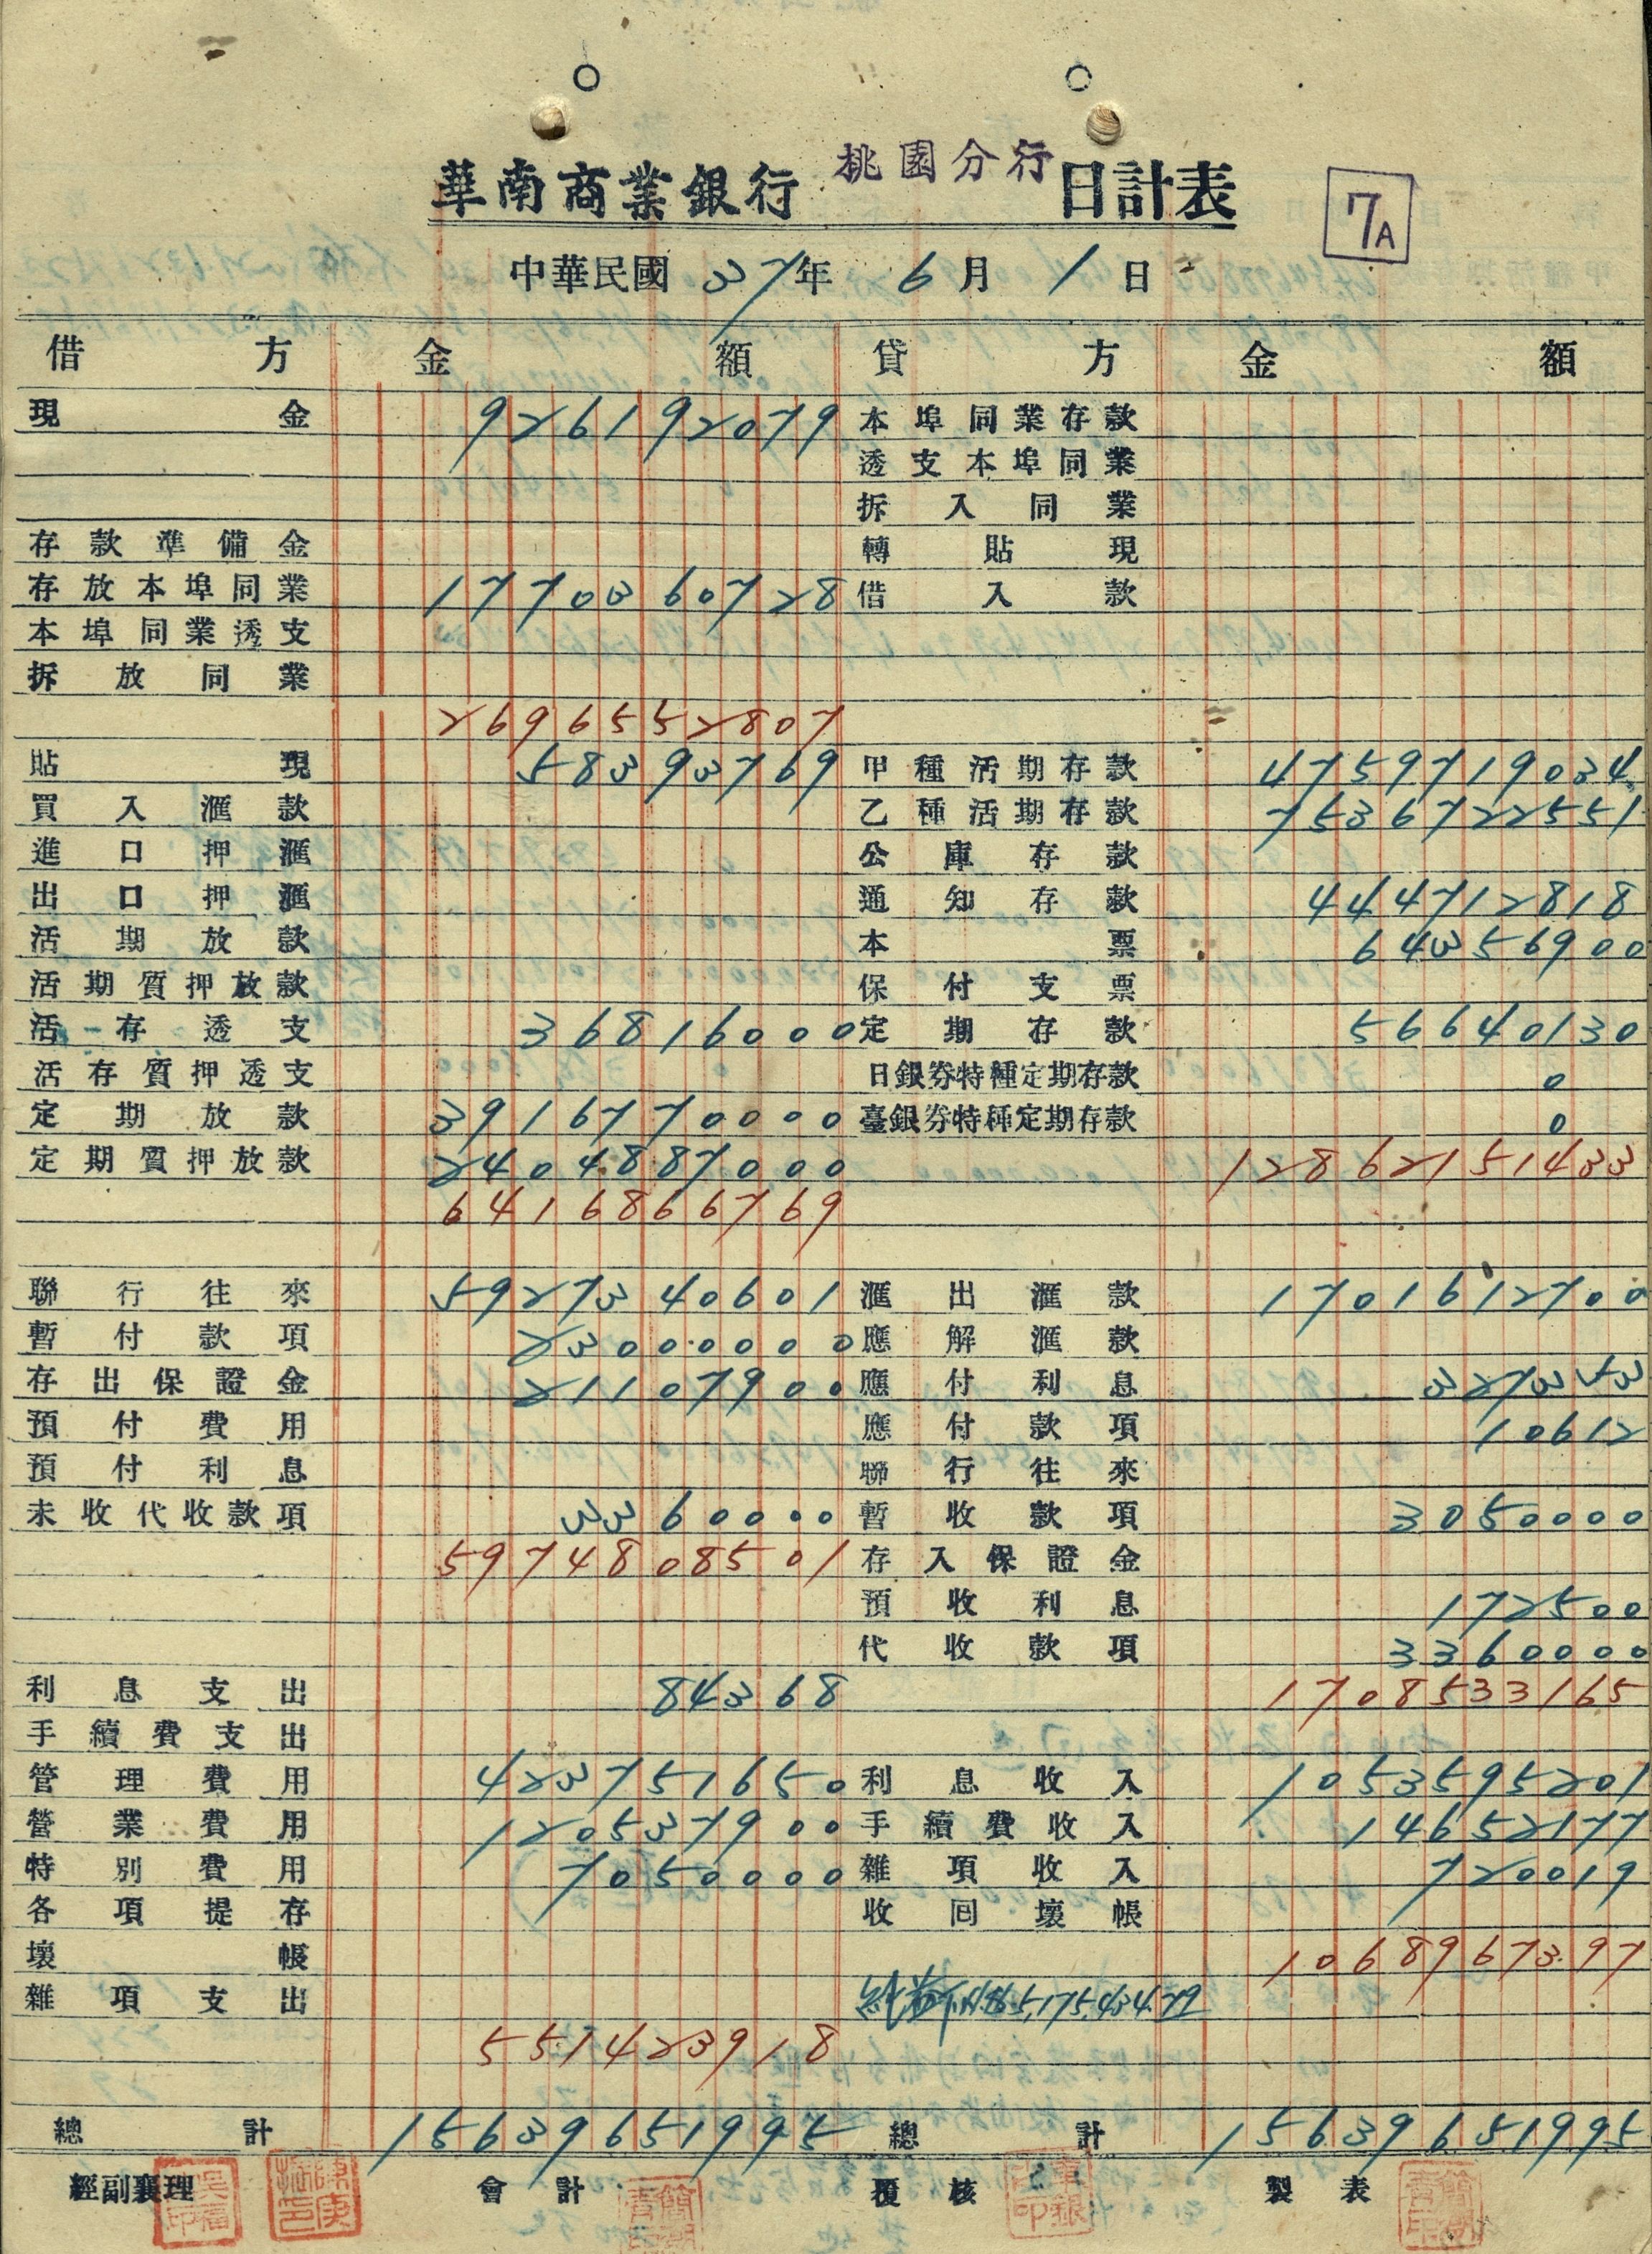 7A
華南商業銀行 桃園分行 日計表
中華民國 37年 6月 1日
借方 金額 貸方 金額
現金 926192079 本埠同業存款
透支本埠同業
拆入同業
存款準備金 轉貼現
存放本埠同業 1770360728 借入款
本埠同業透支
拆放同業
2696552807
貼現 58393769 甲種活期存款 4759719034
買入滙款 乙種活期存款 7536722551
進口押滙 公庫存款
出口押滙 通知存款 444712818
活期放款 本票 64356900
活期質押放款 保付支票
活存透支 36816000 定期存款 56640130
活存質押透支 日銀券特種定期存款 0
定期放款 3916770000 臺銀券特種定期存款 0
定期質押放款 2404887000 12862151433
6416866769
聯行往來 5927340601 滙出滙款 1701612700
暫付款項 23000000 應解滙款
存出保證金 21107900 應付利息 327353
預付費用 應付款項 10612
預付利息 聯行往來
未收代收款項 3360000 暫收款項 3050000
5974808501 存入保證金
預收利息 172500
代收款項 3360000
利息支出 84368 1708533165
手續費支出
管理費用 423751650 利息收入 1053595201
營業費用 120537900 手續費收入 14652177
特別費用 7050000 雜項收入 720019
各項提存 收回壞帳
壞帳 1068967397
雜項支出 純益 5,175,434.79
551423918
總計 15639651995 總計 15639651995
經副襄理 會計 覆核 製表